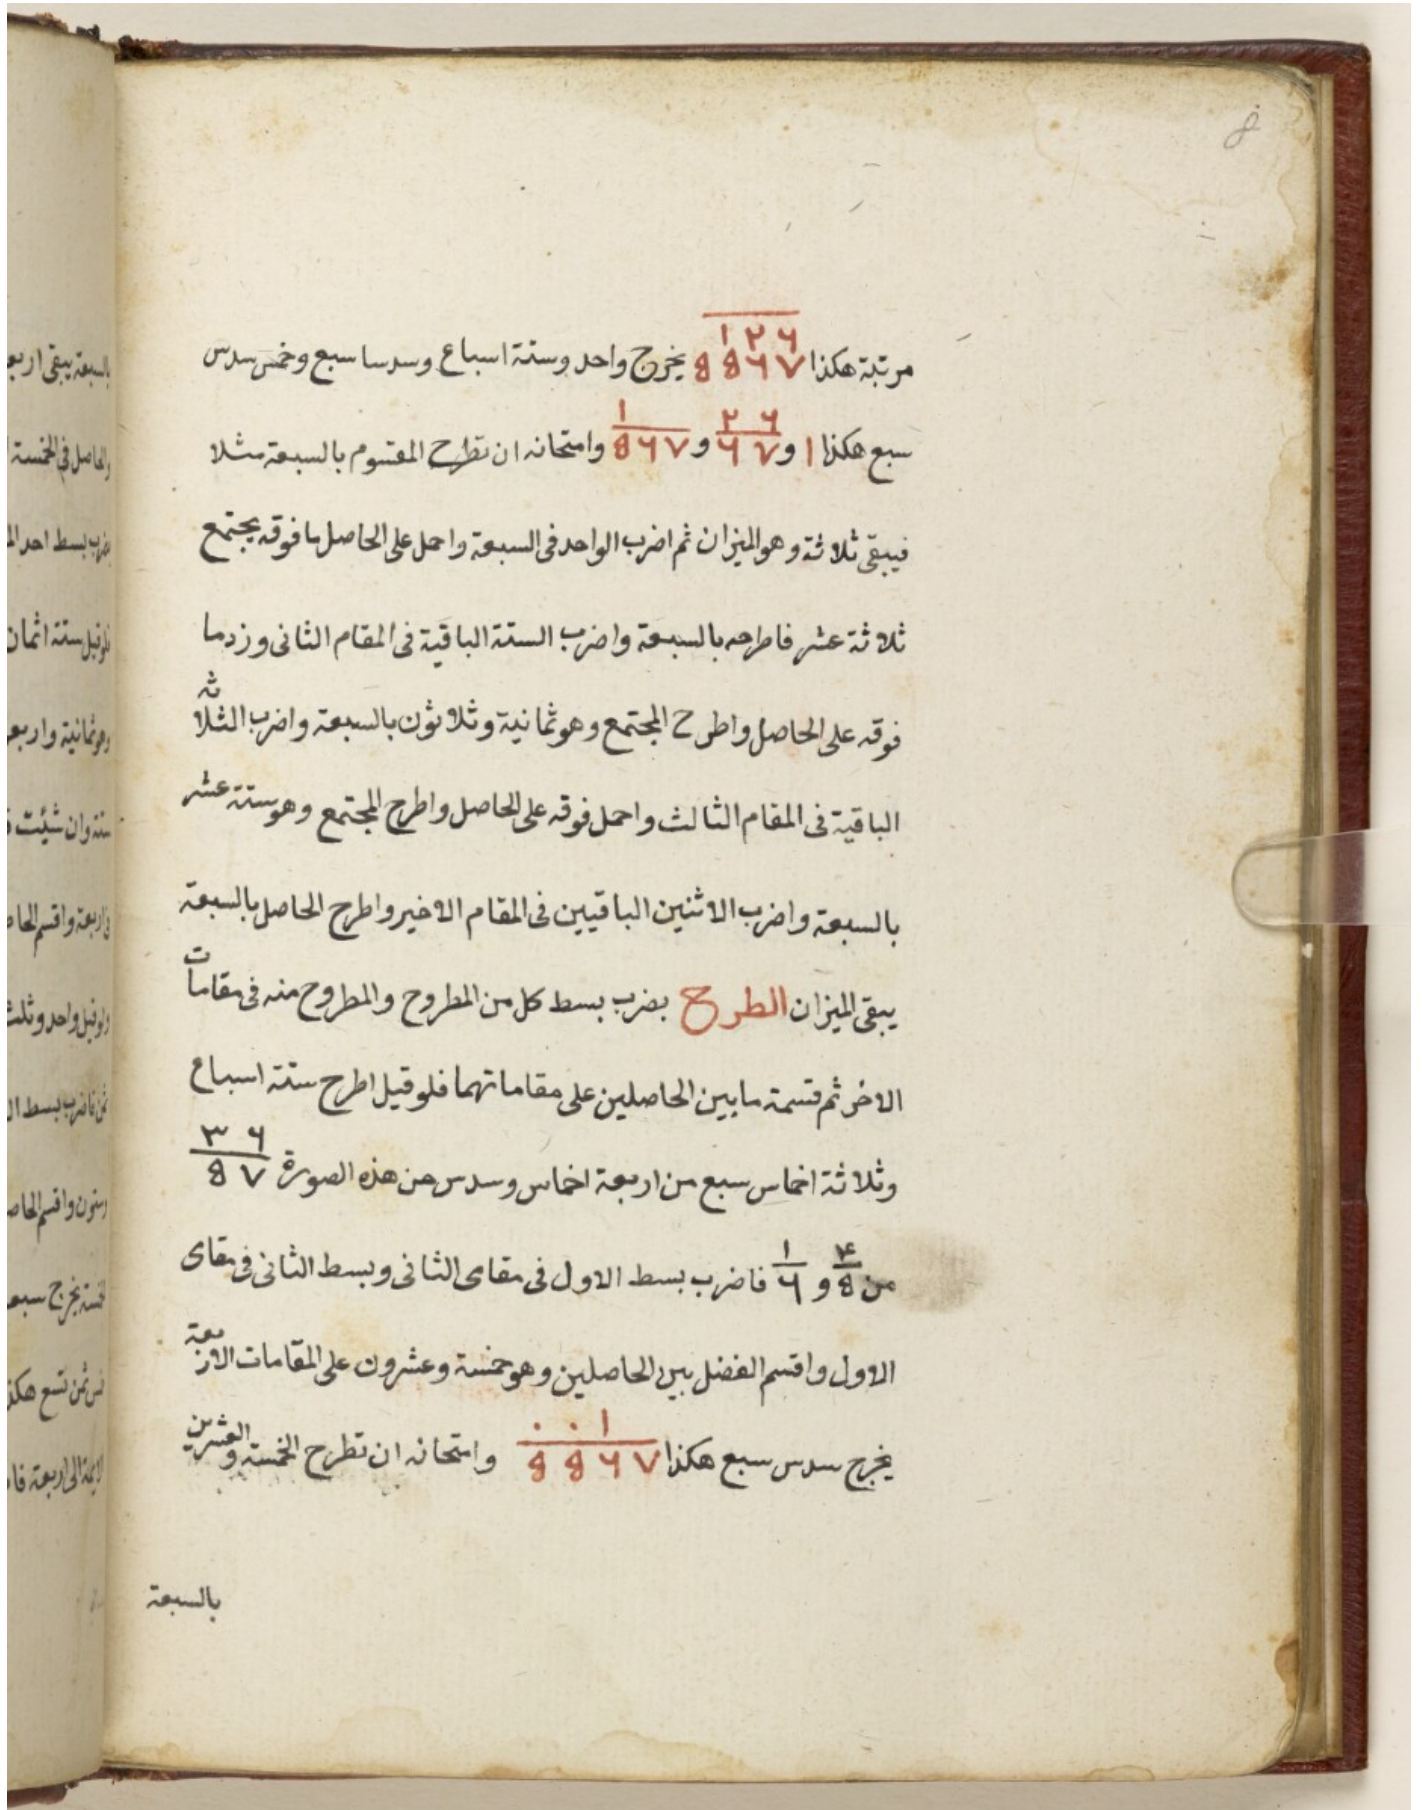 مرتبة هكذا ١٢٦ ٥٥٦٧ يخرج واحد وستة اسباع وسدسا سبع وخمس سدس
سبع هكذا ١ و ٢٦ ٦٧ و ١ ٥٦٧ وامتحانه ان تطرح المقسوم بالسبعة مثلا
فيبقى ثلاثة وهو الميزان ثم اضرب الواحد فى السبعة واحمل على الحاصل ما فوقه يجتمع
ثلاثة عشر فاطرحه بالسبعة واضرب الستة الباقية فى المقام الثانى وزد ما
فوقه على الحاصل واطرح المجتمع وهو ثمانية وثلاثون بالسبعة واضرب الثلاثة
الباقية فى المقام الثالث واحمل فوقه على الحاصل واطرح المجتمع وهو ستة عشر
بالسبعة واضرب الاثنين الباقيين فى المقام الاخير واطرح الحاصل بالسبعة
يبقى الميزان الطرح بضرب بسط كل من المطروح والمطروح منه فى مقامات
الاخر ثم قسمة ما بين الحاصلين على مقاماتهما فلو قيل اطرح ستة اسباع
وثلاثة اخماس سبع من اربعة اخماس وسدس من هذه الصورة ٣٦ ٥٧
من ٤ ٥ و ١ ٦ فاضرب بسط الاول فى مقامى الثانى وبسط الثانى فى مقامى
الاول واقسم الفضل بين الحاصلين وهو خمسة وعشرون على المقامات الاربعة
يخرج سدس سبع هكذا ٠٠١ ٥٥٦٧ وامتحانه ان تطرح الخمسة والعشرين
بالسبعة